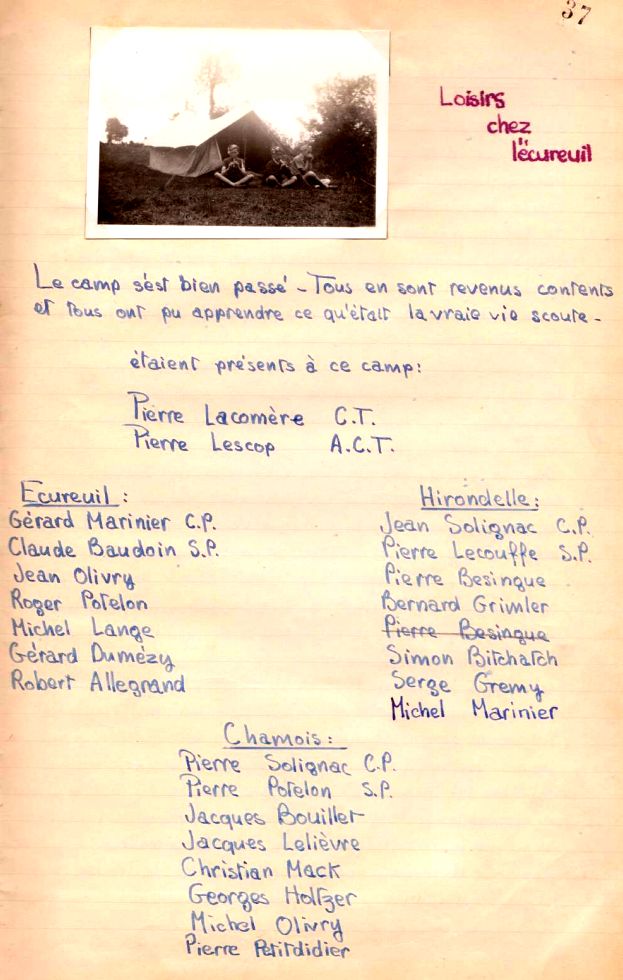 37
Loisirs
chez
l'écureuil
Le camp s'est bien passé - Tous en sont revenus contents
et tous ont pu apprendre ce qu'était la vraie vie scoute -
étaient présents à ce camp:
Pierre Lacomère C.T.
Pierre Lescop A.C.T.
Ecureuil :
Gérard Marinier C.P.
Claude Baudoin S.P.
Jean Olivry
Roger Potelon
Michel Lange
Gérard Dumézy
Robert Allegrand
Hirondelle :
Jean Solignac C.P.
Pierre Lecouffe S.P.
Pierre Besingue
Bernard Grimler
Pierre Besingue
Simon Bitchatch
Serge Gremy
Michel Marinier
Chamois :
Pierre Solignac C.P.
Pierre Potelon S.P.
Jacques Bouillet
Jacques Lelièvre
Christian Mack
Georges Holtzer
Michel Olivry
Pierre Petitdidier